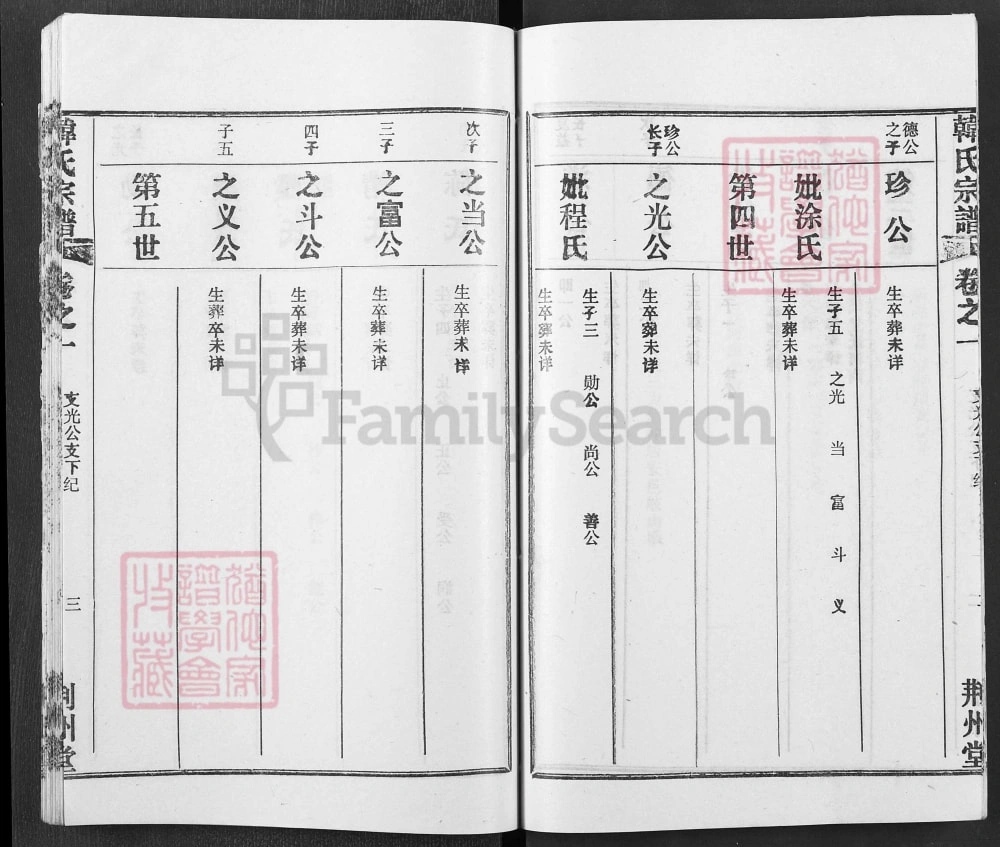 韓氏宗譜
卷之一
荆州堂
德公之子
珍公
生卒葬未详
妣涂氏
生子五 之光 当 富 斗 义
生卒葬未详
第四世
珍公长子
之光公
生卒葬未详
妣程氏
生子三 勋公 尚公 善公
生卒葬未详
次子
之当公
生卒葬未详
三子
之富公
生卒葬未详
四子
之斗公
生卒葬未详
子五
之义公
生葬卒未详
第五世
韓氏宗譜
卷之一
支光公支下纪
三
荆州堂
FamilySearch